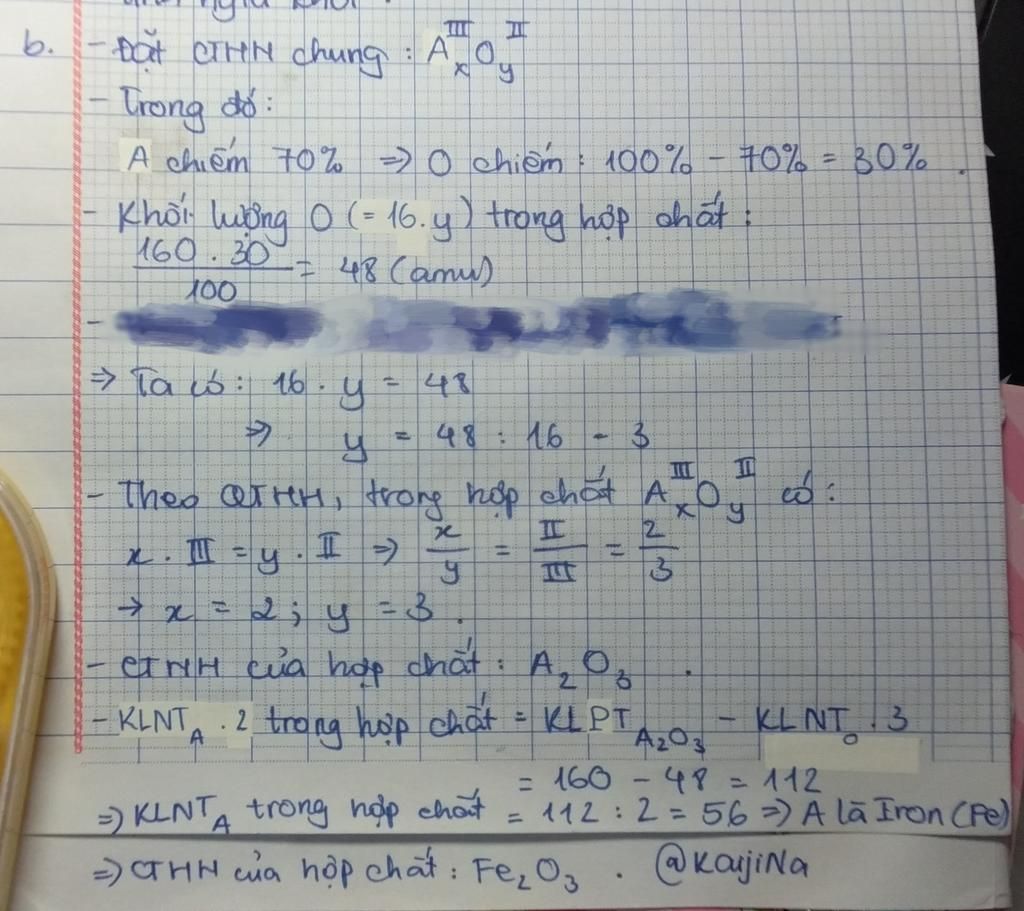 b. - Đặt CTHH chung : A^III_x O^II_y
- Trong đó:
A chiếm 70% => O chiếm : 100% - 70% = 30% .
- Khối lượng O (= 16.y) trong hợp chất :
160 . 30 / 100 = 48 (amu)
-
=> Ta có : 16 . y = 48
=> y = 48 : 16 - 3
- Theo QTHH, trong hợp chất A^III_x O^II_y có :
x . III = y . II => x/y = II/III = 2/3
-> x = 2 ; y = 3 .
- CTHH của hợp chất : A₂O₃ .
- KLNT_A . 2 trong hợp chất = KLPT_A₂O₃ - KLNT_O . 3
= 160 - 48 = 112
=> KLNT_A trong hợp chất = 112 : 2 = 56 => A là Iron (Fe)
=> CTHH của hợp chất : Fe₂O₃ . @KaijiNa